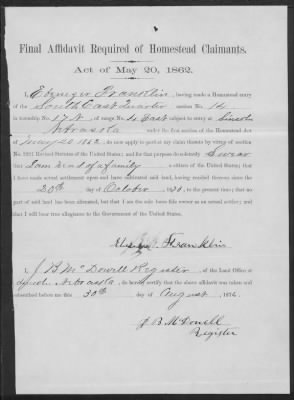 Final Affidavit Required of Homestead Claimants.
Act of May 20, 1862.
I, Ebenezer Franklin, having made a Homestead entry
of the South East Quarter section No. 14
in township No. 17 N, of range No. 4 East subject to entry at Lincoln
Nebraska under the first section of the Homestead Act
of May 20 1862, do now apply to perfect my claim thereto by virtue of section
No. 2291 Revised Statutes of the United States; and for that purpose do solemnly Swear
that I am head of a family a citizen of the United States; that I
have made actual settlement upon and have cultivated said land, having resided thereon since the
20th day of October, 18 , to the present time; that no
part of said land has been alienated, but that I am the sole bona fide owner as an actual settler; and
that I will bear true allegiance to the Government of the United States.
Franklin
I, J B McDowell Register, of the Land Office at
Nebraska, do hereby certify that the above affidavit was taken and
subscribed before me this 30th day of August 1876.
J. B. McDowell
Register